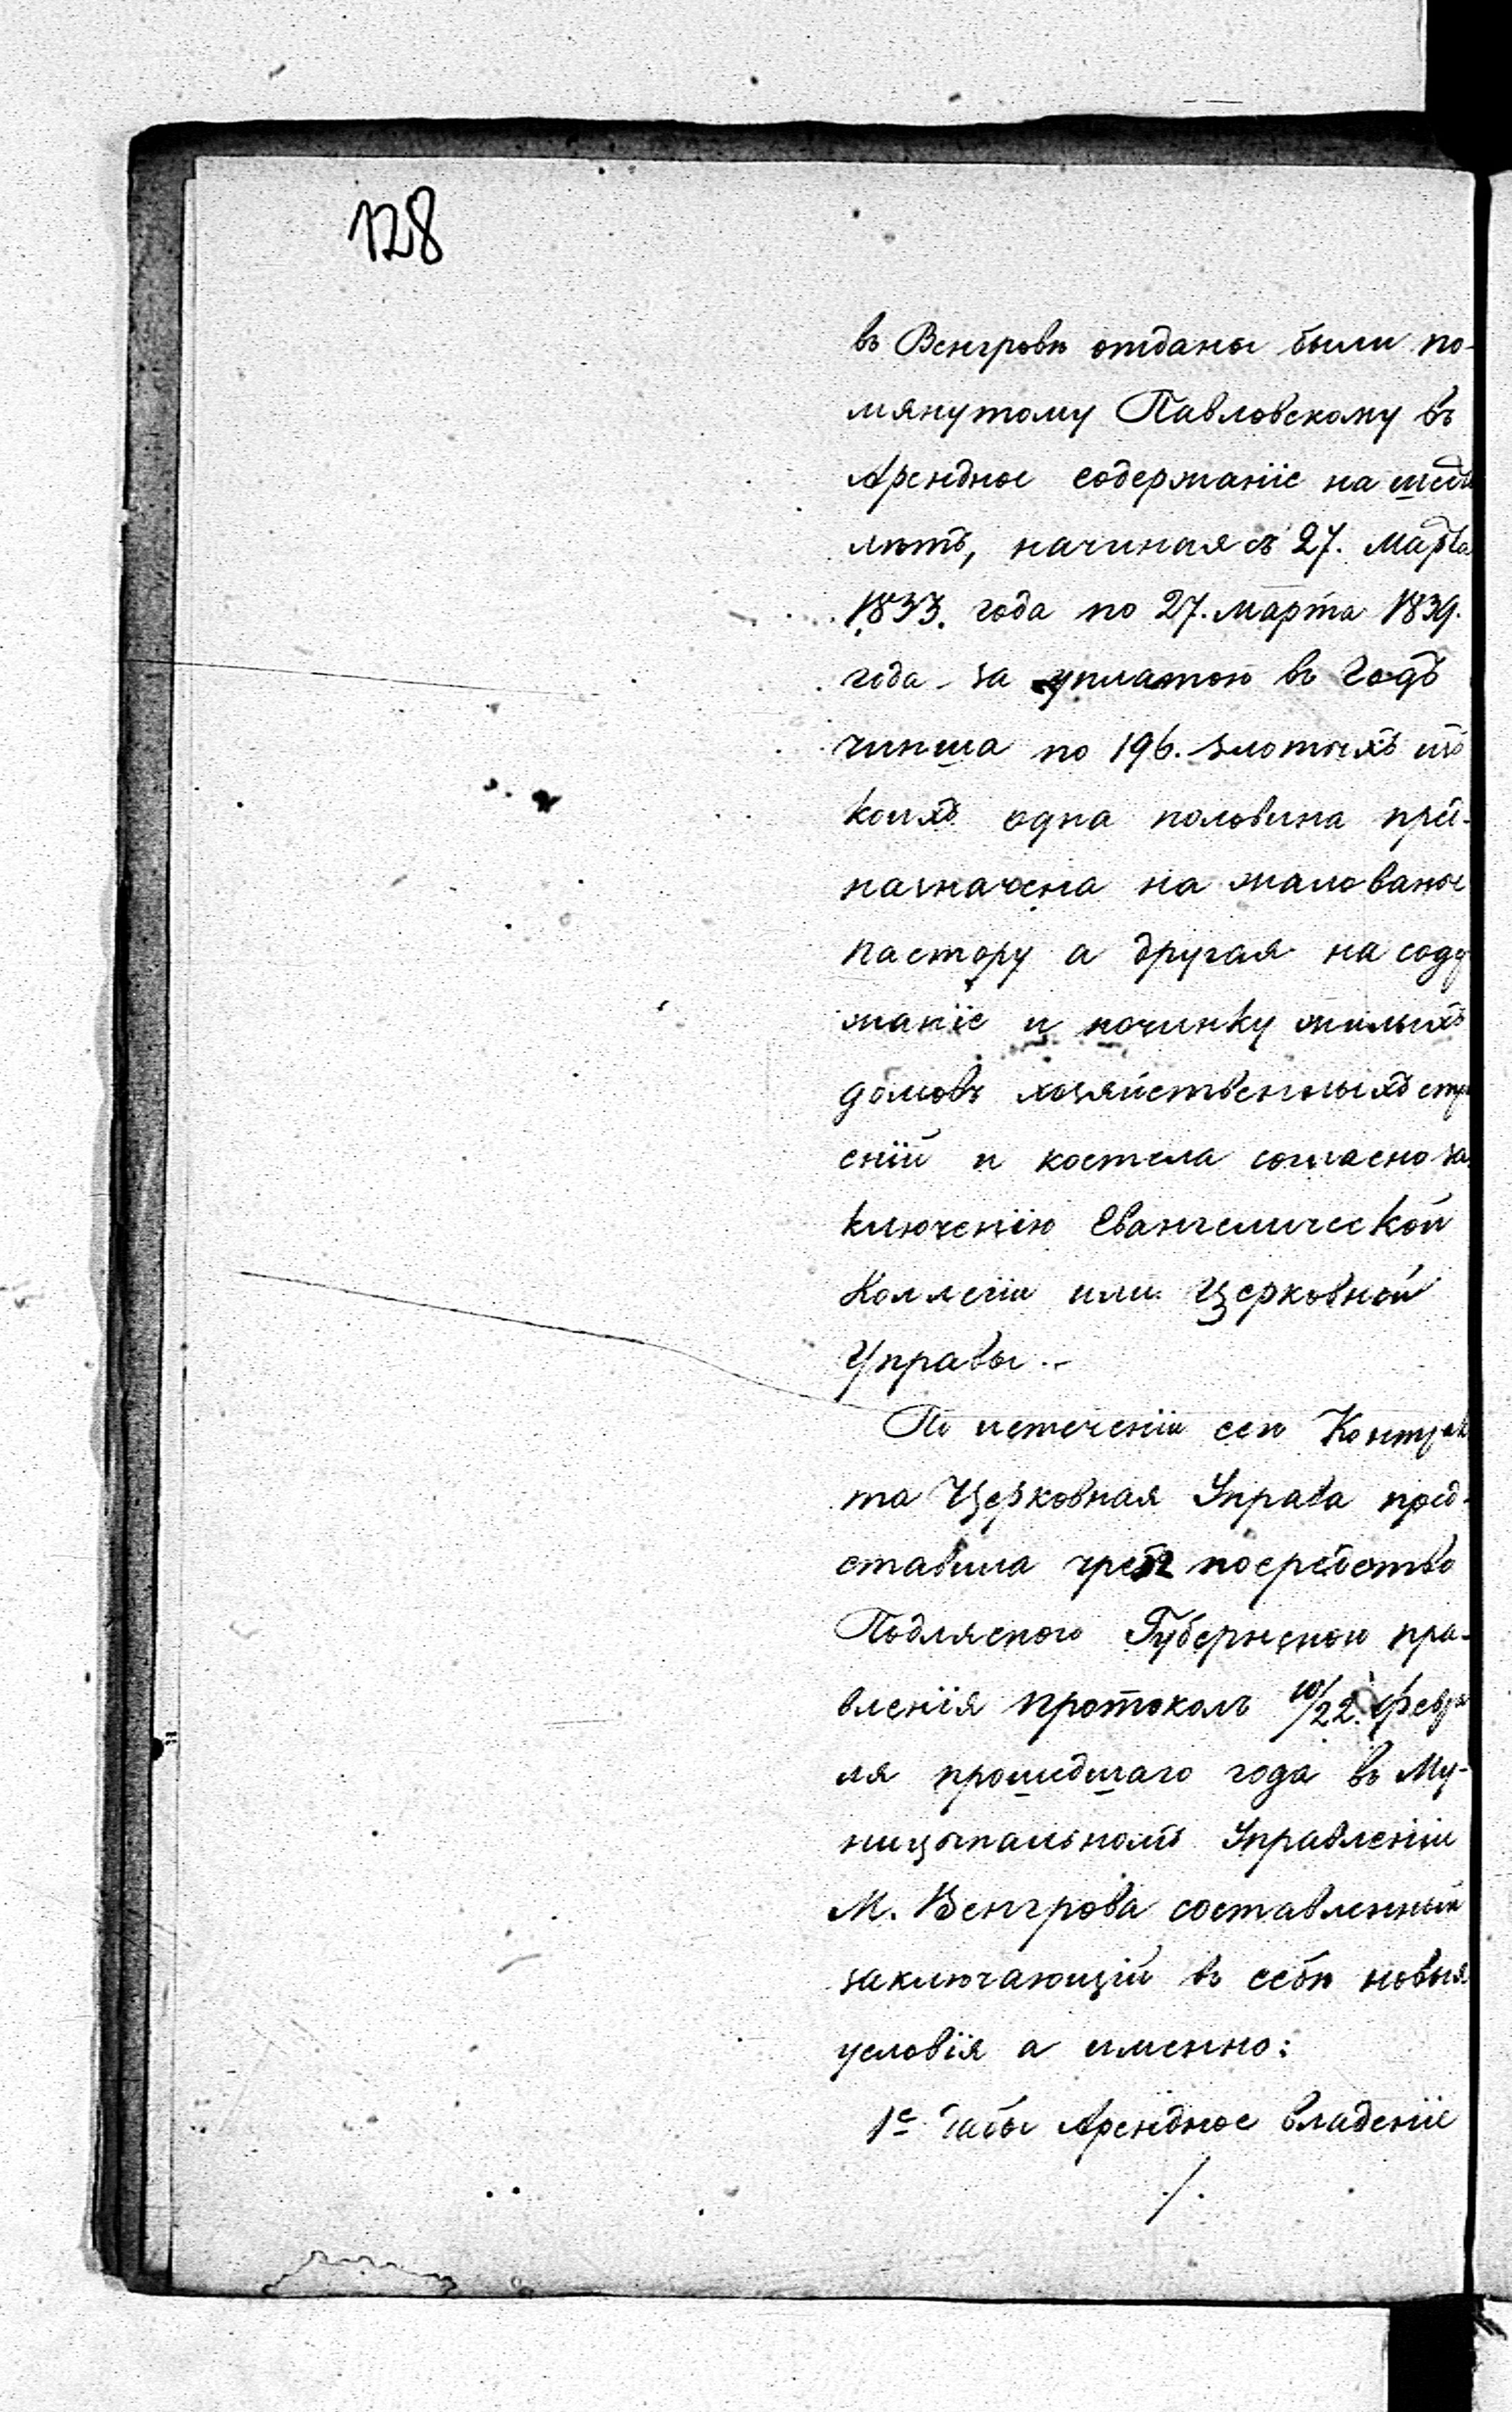 128
въ Венгровѣ отданы были по-
мянутому Павловскому въ
Арендное содержаніе на шесть
лѣтъ, начиная съ 27. Марта
1833. года по 27. марта 1839.
года за уплатою въ годъ
чинша по 196. злотыхъ изъ
коихъ одна половина пред-
назначена на жалованье
пастору а другая на содер
жаніе и починку жилыхъ
домовъ хозяйственныхъ стро
еній и костела согласно за
ключенію Евангелической
Коллегіи или Церковной
Управы.-
По истеченіи сего Контрак
та Церковная Управа пред-
ставила чрезъ посредство
Подляскаго Губернскаго пра-
вленія протоколъ 10/22. Февра
ля прошедшаго года въ Му-
ниципальномъ Управленіи
М. Венгрова составленный
заключающій въ себѣ новыя
условія а именно:
1е. дабы Арендное владеніе
./.